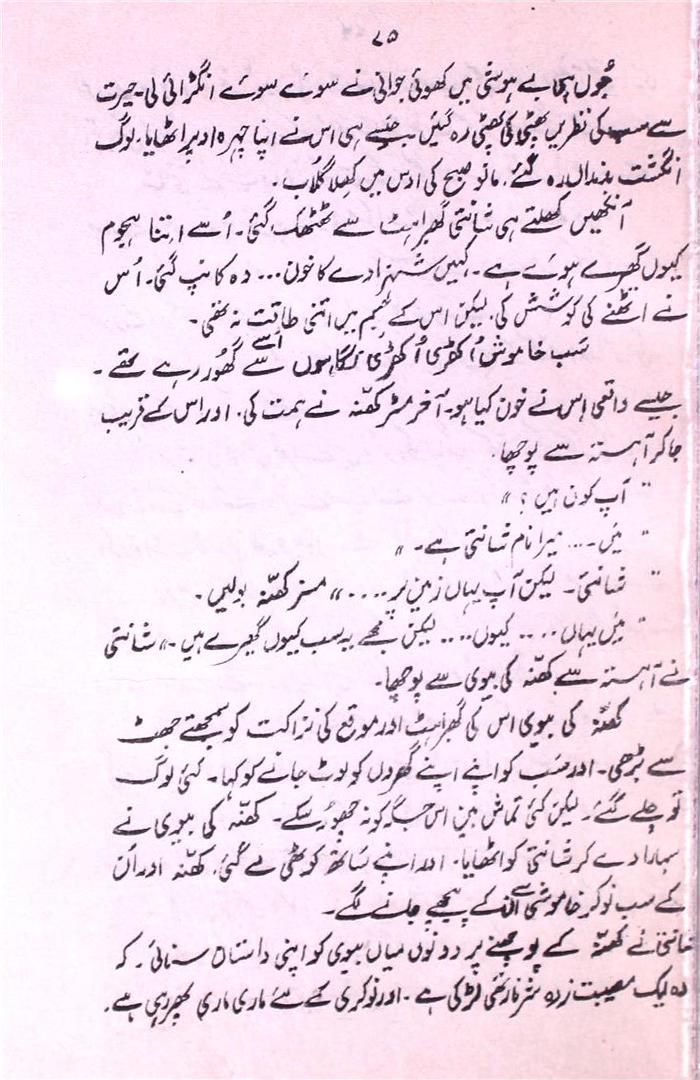 ۷۵
جُوں ہی بے ہوشی میں کھوئی جوانی نے سوئے سوئے انگڑائی لی۔ حیرت
سے سب کی نظریں پھٹی کی پھٹی رہ گئیں جیسے ہی اس نے اپنا چہرہ اوپر اٹھایا۔ لوگ
انگشت بدنداں رہ گئے۔ مانو صبح کی اوس میں کھِلا گلاب۔
آنکھیں کھلتے ہی شانتی گھبراہٹ سے ٹھٹھک گئی۔ اُسے اتنا ہجوم
کیوں گھیرے ہوئے ہے۔ کہیں شہزادے کا خون ... وہ کانپ گئی۔ اُس
نے اٹھنے کی کوشش کی۔ لیکن اس کے جسم میں اتنی طاقت نہ تھی۔
سَب خاموش اُکھڑی اُکھڑی نگاہوں سے اُسے گھُور رہے تھے۔
جیسے واقعی اس نے خون کیا ہو۔ آخر مسٹر کھنّہ نے ہمت کی۔ اور اس کے قریب
جا کر آہستہ سے پوچھا۔
"آپ کون ہیں؟"
"مَیں .... میرا نام شانتی ہے۔"
"شانتی۔ لیکن آپ یہاں زمین پر ...." مسز کھنّہ بولیں۔
"مَیں یہاں .... کیوں .... لیکن مجھے یہ سب کیوں گھیرے ہیں۔" شانتی
نے آہستہ سے کھنّہ کی بیوی سے پوچھا۔
کھنّہ کی بیوی اس کی گھبراہٹ اور موقع کی نزاکت کو سمجھتے جھٹ
سے بڑھی۔ اور سَب کو اپنے اپنے گھروں کو لوٹ جانے کو کہا۔ کئی لوگ
تو چلے گئے۔ لیکن کئی تماش بین اس جگہ کو نہ چھوڑ سکے۔ کھنّہ کی بیوی نے
سہارا دے کر شانتی کو اٹھایا۔ اور اپنے سَاتھ کوٹھی لے گئی۔ کھنّہ اور اُن
کے سب نوکر خاموشی سے اُن کے پیچھے چلنے لگے۔
شانتی نے کھنّہ کے پوچھنے پر دونوں میاں بیوی کو اپنی داستان سنائی۔ کہ
وہ ایک مصیبت زدہ شرنارتھی لڑکی ہے۔ اور نوکری کے لئے ماری ماری پھر رہی ہے۔